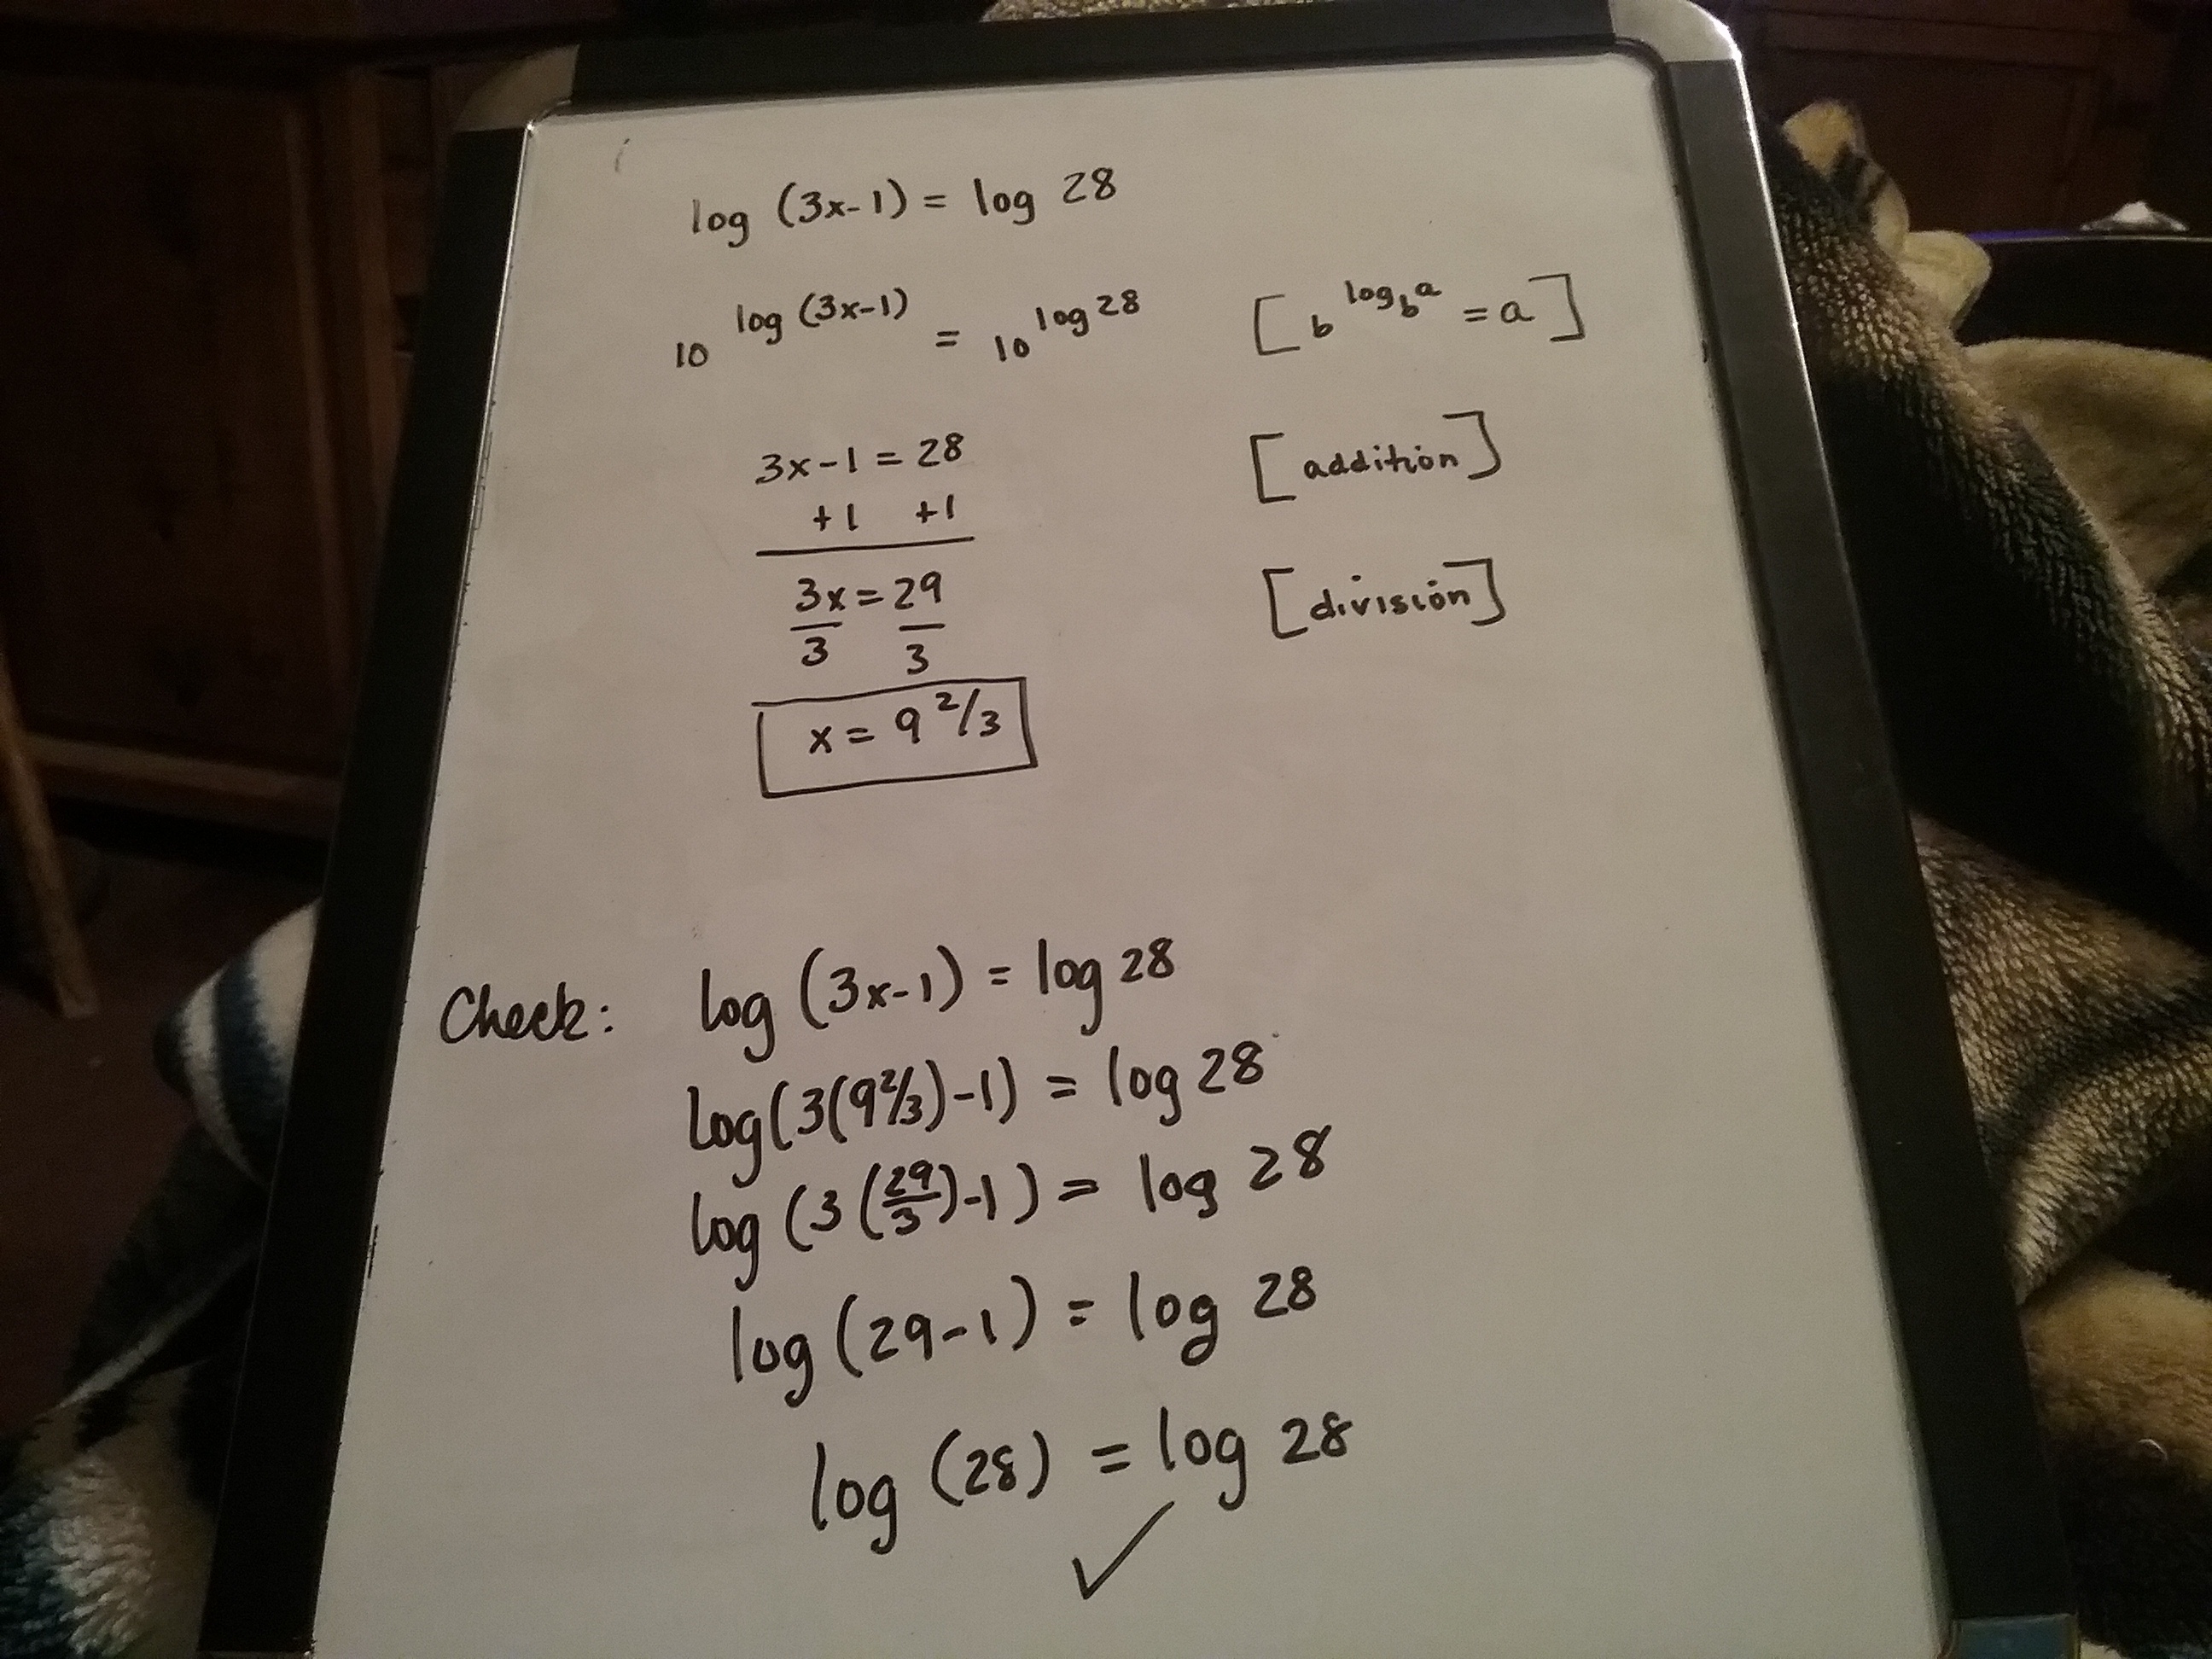 log (3x-1) = log 28
10^log (3x-1) = 10^log 28 [b^log_b a = a]
3x-1 = 28 [addition]
+1 +1
3x = 29 [division]
3 3
x = 9 2/3
Check: log (3x-1) = log 28
log(3(9 2/3)-1) = log 28
log (3(29/3)-1) = log 28
log (29-1) = log 28
log (28) = log 28
✓